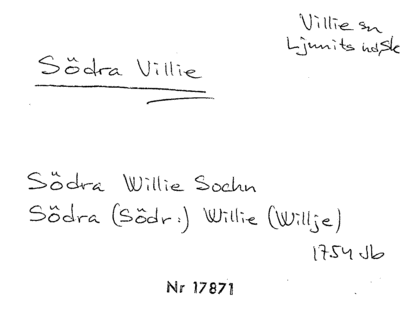 Villie sn
Ljunits hd, Sk
Södra Villie
Södra Willie Sochn
Södra (Södr:) Willie (Willje)
1754 Jb
Nr 17871